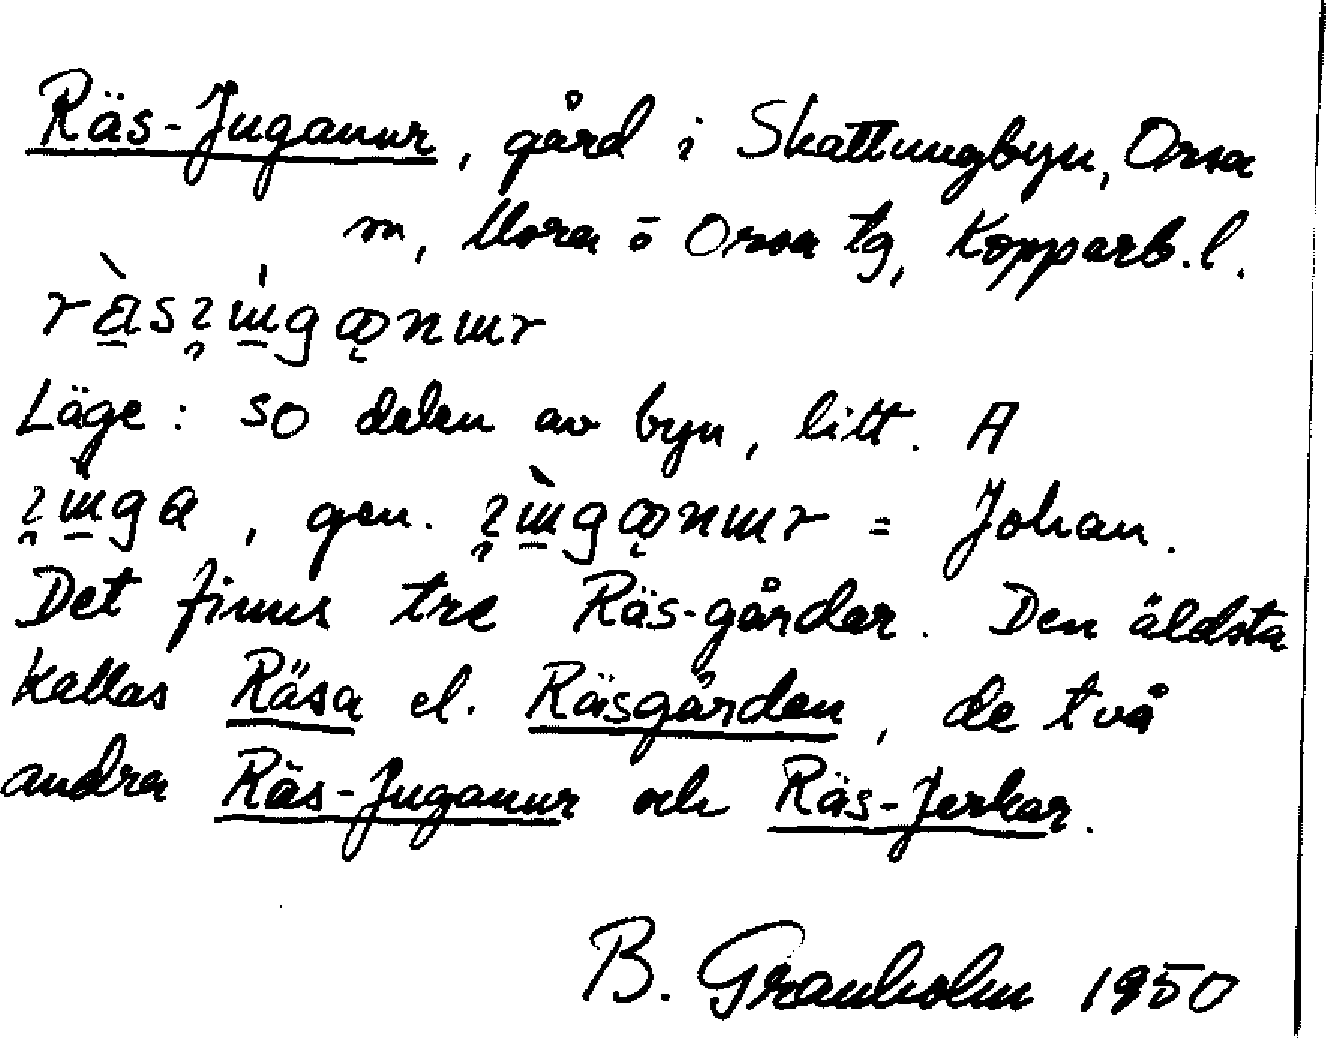 Räs-Juganur, gård i Skattungbyn, Orsa
m, Mora o Orsa tg, Kopparb. l.
Läge: SO delen av byn, litt. A
, gen. = Johan.
Det finns tre Räs-gårdar. Den äldsta
kallas Räsa el. Räsgården, de två
andra Räs-Juganur och Räs-Jerkar.
B. Granholm 1950